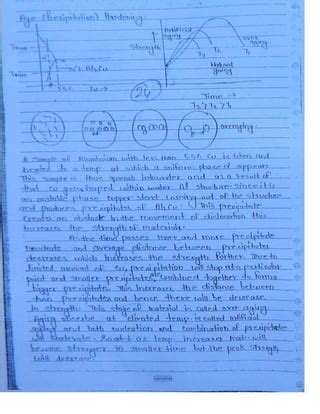 Age (Precipitation) Hardening:
Strength
Artificial aging
over aging
Natural aging
T3 T2 T1
Time →
T3 > T2 > T1
5.5% Cu →
24
A sample of Aluminium with less than 5.5% Cu is taken and
heated to a temp at which a uniform phase appears
This sample is thus quench in water and as a result of
that Cu gets trapped within Al structure since it is
an unstable phase copper start coming out of the structure
and produces precipitate of Al2Cu. This precipitate
create an obstacle in the movement of dislocation this
increase the strength of materials.
As the time passes more and more precipitate
and average distance between precipitates
decreases which increases the strength further. Due to
limited amount of Cu, precipitation will stop at a particular
point and smaller precipitates combined together to form
bigger precipitate. This increases the distance between
two precipitates and hence there will be decrease
in strength. This stage of material is called over aging
Aging at elevated temp. is called artificial
and both nucleation and combination of precipitate
will accelerate. as temp increases
become stronger in smaller time but the peak strength
will decrease.